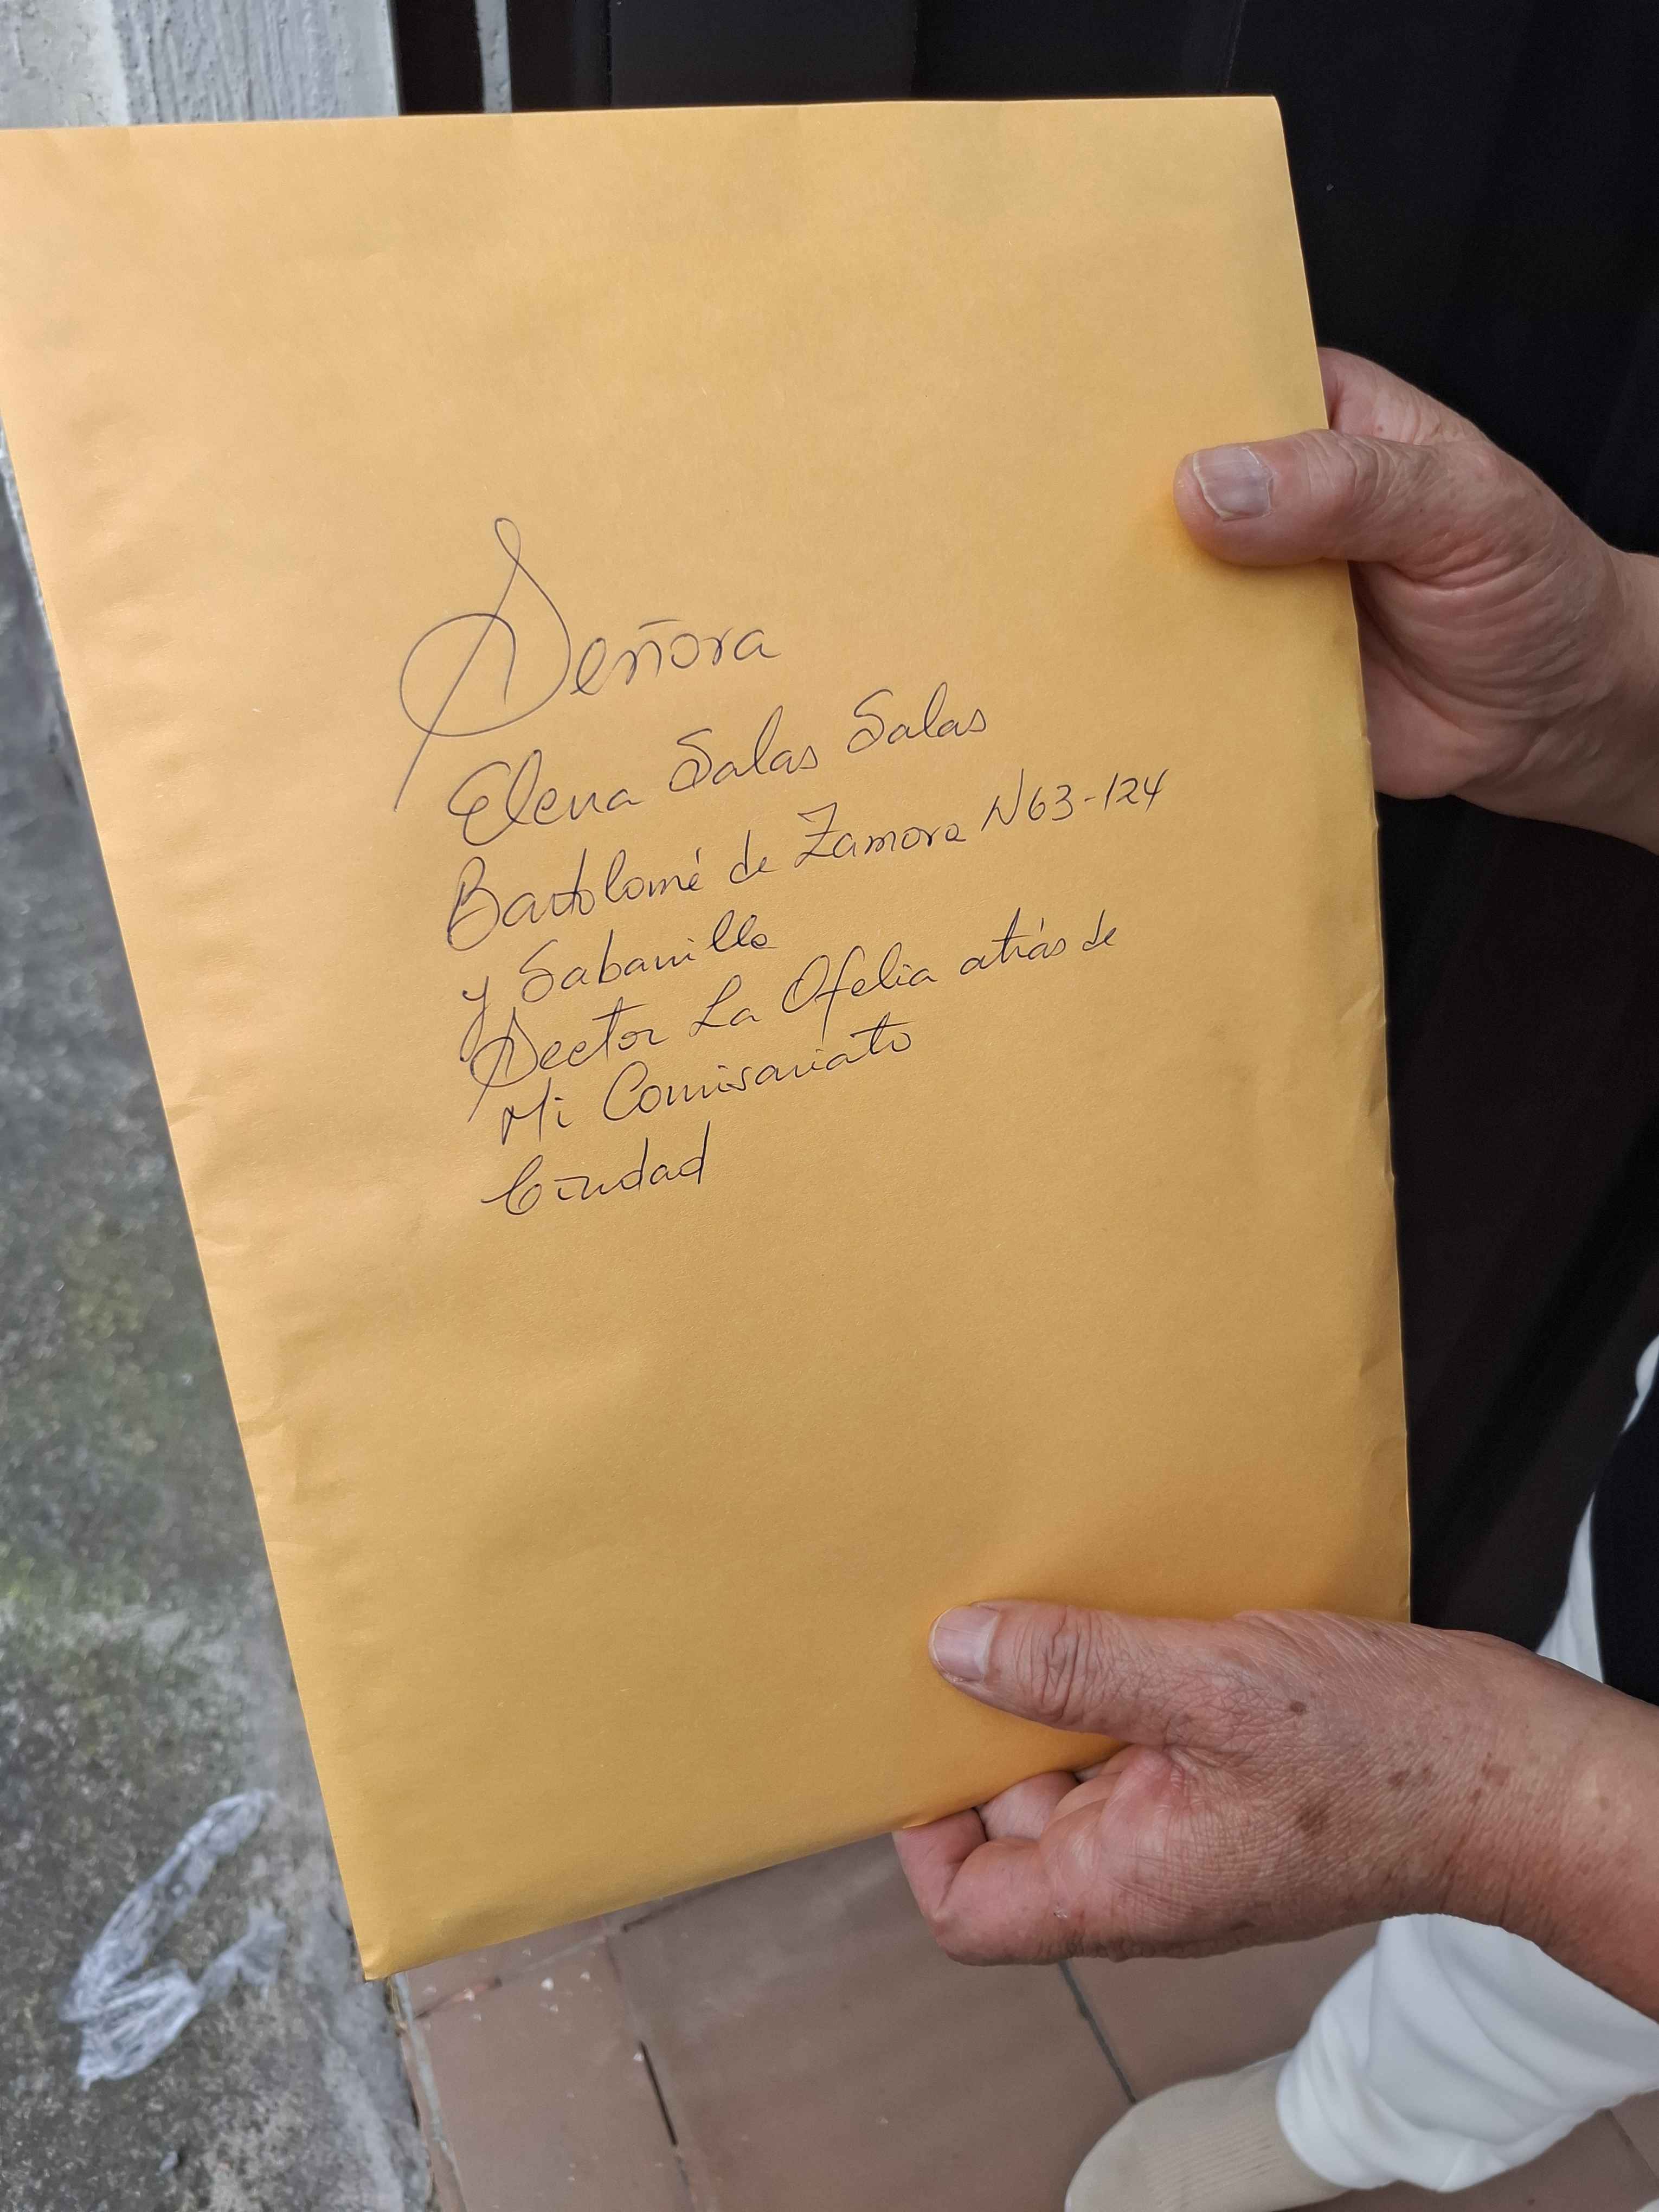 Señora
Elena Salas Salas
Bartolomé de Zamora N63-124
y Sabanilla
Sector La Ofelia atrás de
Mi Comisariato
Ciudad